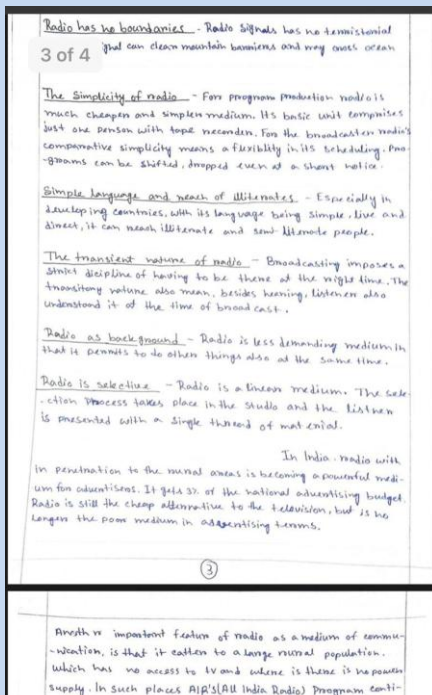 Radio has no boundaries - Radio Signals has no terristorial
3 of 4
gnal can clean mountain banniens and may cross ocean
The Simplicity of radio - For program production radio is
much cheapen and simplen medium. Its basic unit comprises
just one person with tape recorder. For the broadcaster radio's
comparative simplicity means a flexiblity in its scheduling. Pro-
-grams can be shifted, dropped even at a short notice.
Simple language and reach of illiterates - Especially in
developing countries, with its language being simple, live and
direct, it can reach illiterate and semi literate people.
The transient nature of radio - Broadcasting imposes a
strict dicipline of having to be there at the right time. The
transitory nature also mean, besides hearing, listener also
understand it at the time of broad cast.
Radio as background - Radio is less demanding medium in
that it permits to do other things also at the same time.
Radio is selective - Radio is a linear medium. The sele-
-ction process takes place in the studio and the listner
is presented with a single thread of material.
In India. radio with
in penetration to the rural areas is becoming a powerful medi-
um for advertisers. It gets 3% of the national advertising budget.
Radio is still the cheap alternative to the television, but is no
longer the poor medium in advertising terms.
3
Another important feature of radio as a medium of commu-
-nication, is that it catter to a large rural population.
which has no access to tv and where is there is no power
supply. In such places AIR's (All India Radio) program conti-